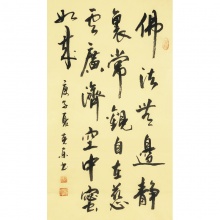 佛法無邊靜
裏常觀自在慈
雲廣濟空中
如
庚子夏